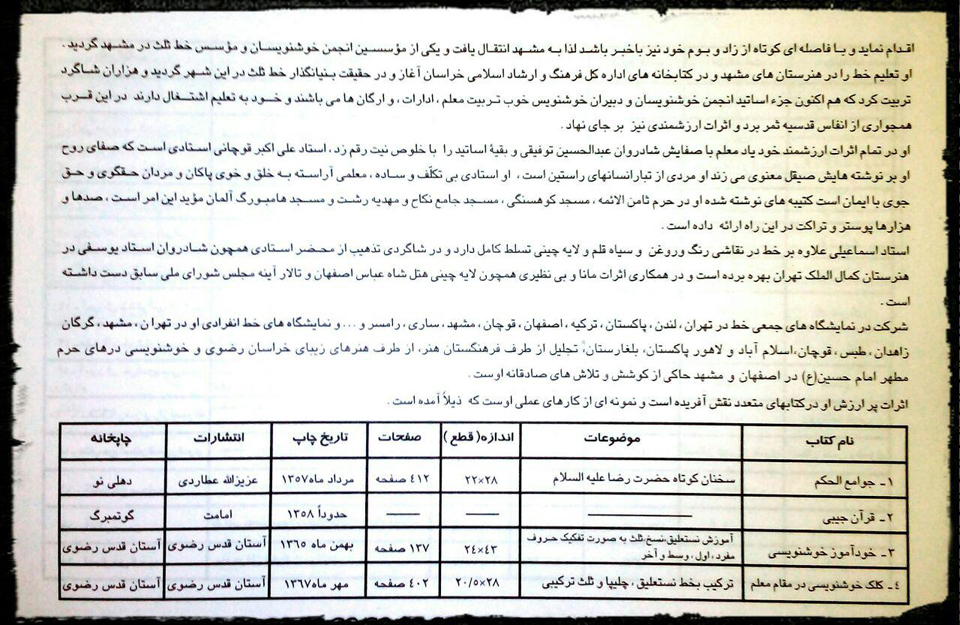 اقدام نماید و با فاصله ای کوتاه از زاد و بوم خود نیز باخبر باشد لذا به مشهد انتقال یافت و یکی از مؤسسین انجمن خوشنویسان و مؤسس خط ثلث در مشهد گردید .
او تعلیم خط را در هنرستان های مشهد و در کتابخانه های اداره کل فرهنگ و ارشاد اسلامی خراسان آغاز و در حقیقت بنیانگذار خط ثلث در این شهر گردید و هزاران شاگرد
تربیت کرد که هم اکنون جزء اساتید انجمن خوشنویسان و دبیران خوشنویس خوب تربیت معلم ، ادارات ، و ارگان ها می باشند و خود به تعلیم اشتغال دارند در این قرب
همجواری از انفاس قدسیه ثمر برد و اثرات ارزشمندی نیز بر جای نهاد .
او در تمام اثرات ارزشمند خود یاد معلم با صفایش شادروان عبدالحسین توفیقی و بقیۀ اساتید را با خلوص نیت رقم زد ، استاد علی اکبر قوچانی استادی است که صفای روح
او بر نوشته هایش صیقل معنوی می زند او مردی از تبار انسانهای راستین است ، او استادی بی تکلّف و ساده ، معلمی آراسته به خلق و خوی پاکان و مردان حقگوی و حق
جوی با ایمان است کتیبه های نوشته شده او در حرم ثامن الائمه ، مسجد کوهسنگی ، مسجد جامع نکاح و مهدیه رشت و مسجد هامبورگ آلمان مؤید این امر است ، صدها و
هزارها پوستر و تراکت در این راه ارائه داده است .
استاد اسماعیلی علاوه بر خط در نقاشی رنگ وروغن و سیاه قلم و لایه چینی تسلط کامل دارد و در شاگردی تذهیب از محضر استادی همچون شادروان استاد یوسفی در
هنرستان کمال الملک تهران بهره برده است و در همکاری اثرات مانا و بی نظیری همچون لایه چینی هتل شاه عباس اصفهان و تالار آینه مجلس شورای ملی سابق دست داشته
است .
شرکت در نمایشگاه های جمعی خط در تهران ، لندن ، پاکستان ، ترکیه ، اصفهان ، قوچان ، مشهد ، ساری ، رامسر و ... و نمایشگاه های خط انفرادی او در تهران ، مشهد ، گرگان
زاهدان ، طبس ، قوچان،اسلام آباد و لاهور پاکستان، بلغارستان، تجلیل از طرف فرهنگستان هنر، از طرف هنرهای زیبای خراسان رضوی و خوشنویسی درهای حرم
مطهر امام حسین(ع) در اصفهان و مشهد حاکی از کوشش و تلاش های صادقانه اوست .
اثرات پر ارزش او درکتابهای متعدد نقش آفریده است و نمونه ای از کارهای عملی اوست که ذیلاً آمده است .
نام کتاب موضوعات اندازه( قطع ) صفحات تاریخ چاپ انتشارات چاپخانه
۱- جوامع الحکم سخنان کوتاه حضرت رضا علیه السلام ۲۲×۲۸ ٤۱۲ صفحه مرداد ماه۱۳٥۷ عزیزالله عطاردی دهلی نو
۲- قرآن جیبی ——— —— —— حدوداً ۱۳٥۸ امامت گوتمبرگ
۳- خودآموز خوشنویسی آموزش نستعلیق،نسخ،ثلث به صورت تفکیک حروف
مفرد، اول ، وسط و آخر ۲٤×٤۳ ۱۳۷ صفحه بهمن ماه ۱۳٦٥ آستان قدس رضوی آستان قدس رضوی
٤- کلک خوشنویسی در مقام معلم ترکیب بخط نستعلیق ، چلیپا و ثلث ترکیبی ۲۰/٥×۲۸ ٤۰۲ صفحه مهر ماه۱۳٦۷ آستان قدس رضوی آستان قدس رضوی